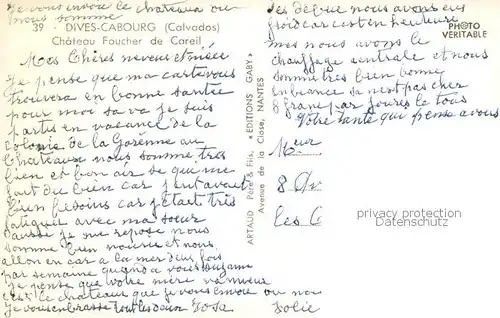 je vous envoie le chateau ou
nous somme
39 - DIVES-CABOURG (Calvados)
Château Foucher de Careil
Mes Chères neveu et nièce
je pense que ma carte vous
trouvera en bonne santée
pour moi sa va je suis
partis en vacance de la
colonie de la Garenne au
Chateaux nous somme très
bien et bon air se que me
fait du bien car j'ent avait
bien besoins car j'était très
fatiguée avec ma sœur
aussi je me repose nous
somme bien nourie et nous
allon en car a la mer deux fois
par semaine quand a vous Suzanne
je pense que votre mère va mieux
c'est le chateaux que je vous envoie ou nous
je vous embrasse tout les deux
ARTAUD Père & Fils, « EDITIONS GABY »
Avenue de la Close, NANTES
PHOTO
VERITABLE
nous avons eu
froid car cest en heuteur
mes nous avons le
chauffage centrale et nous
somme très bien bonne
enbeance sa nest pas cher
8 franc par jours le tous
Votre tante qui pense a vous
Meur
8
les
privacy protection
Datenschutz